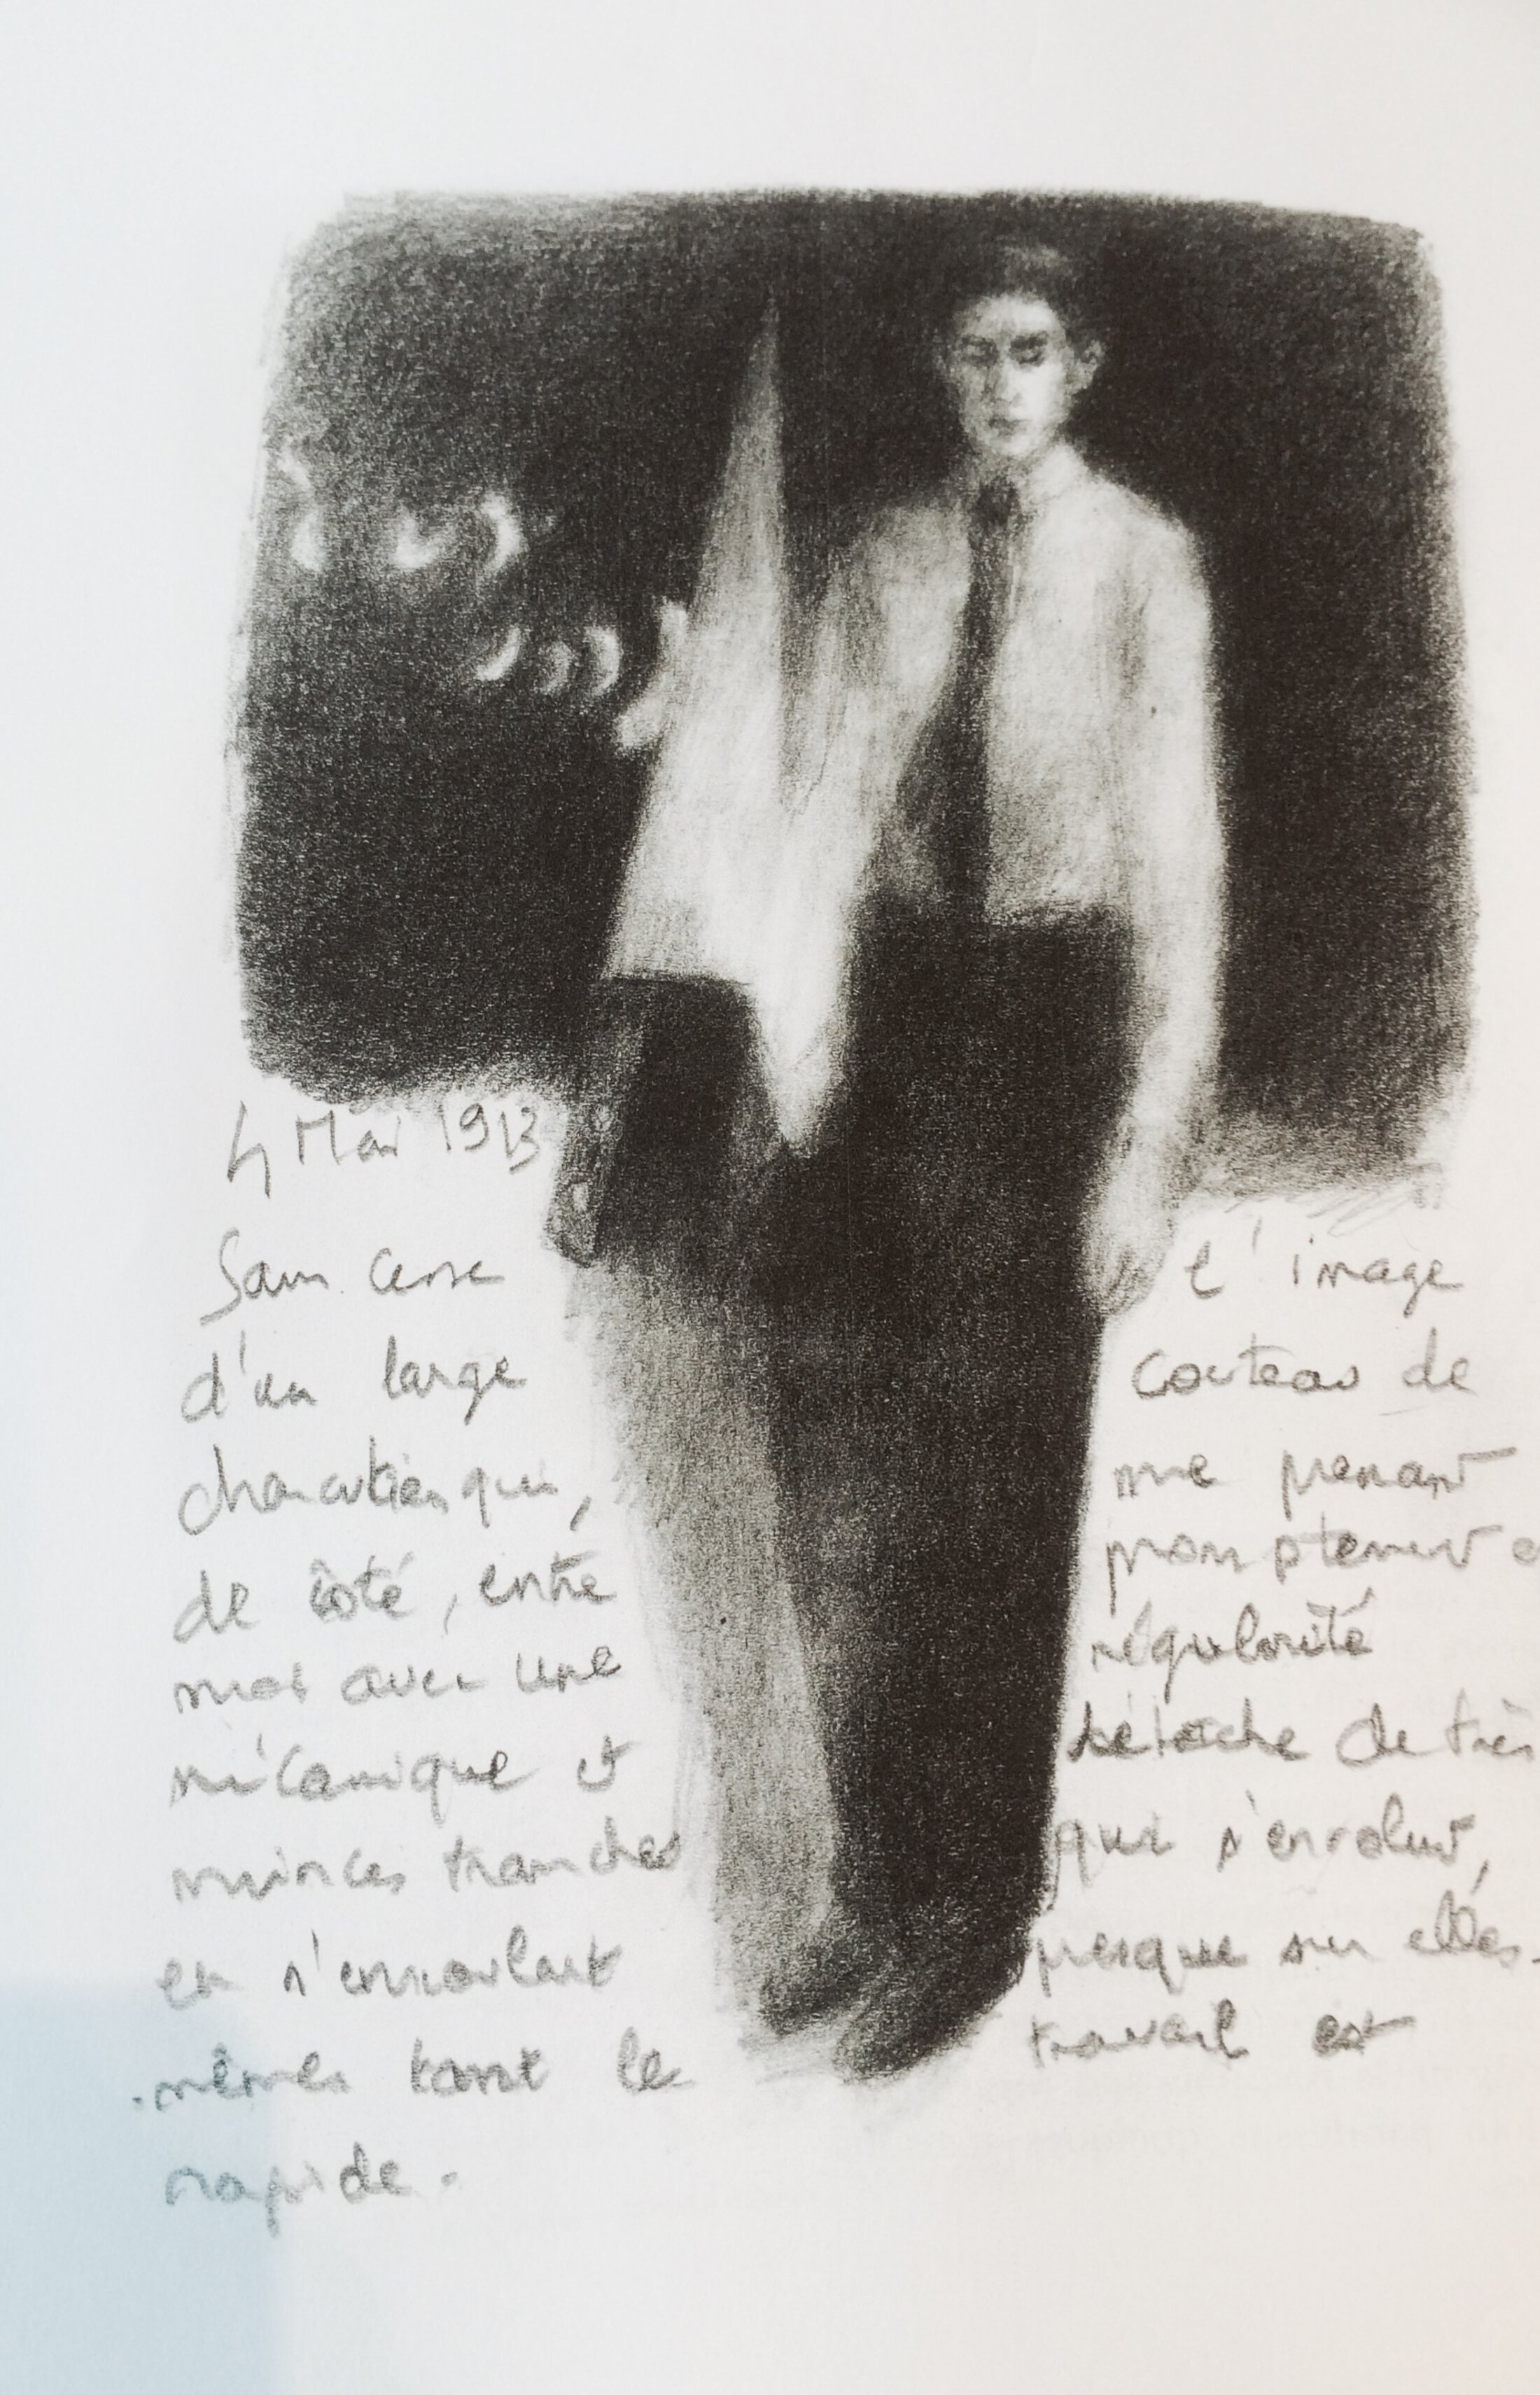 4 Mai 1913
Sans cesse l'image
d'un large couteau de
charcutier qui, me prenant
de côté, entre promptement
moi avec une régularité
mécanique et détache de très
minces tranches qui s'envolent,
en s'enroulant presque sur elles-
-mêmes tant le travail est
rapide.